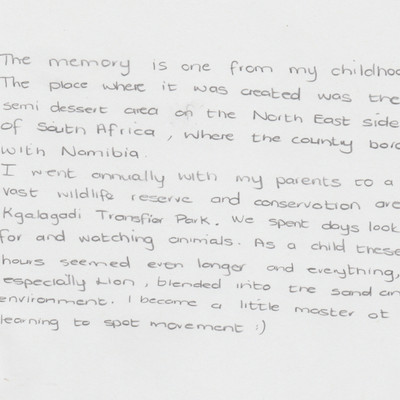 The memory is one from my childhoo
The place where it was created was the
semi dessert area on the North East side
of South Africa, where the country bord
with Namibia.
I went annually with my parents to a
vast wildlife reserve and conservation are
Kgalagadi Transfier Park. We spent days look
for and watching animals. As a child these
hours seemed even longer and everything,
especially Lion, blended into the sand an
environment. I became a little master at
learning to spot movement :)